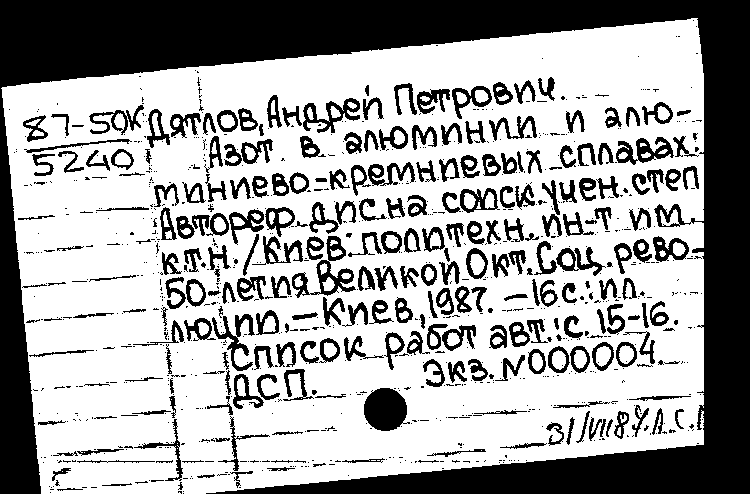 87-50К Дятлов, Андрей Петрович.
5240 Азот в алюминии и алю-
миниево-кремниевых сплавах:
Автореф. дис. на соиск. учен. степ
к.т.н. / Киев. политехн. ин-т им.
50-летия Великой Окт. Соц. рево-
люции. — Киев, 1987. — 16 с.: ил.
Список работ авт.: с. 15-16.
ДСП. Экз. N000004.
31/VII 87. А.С.